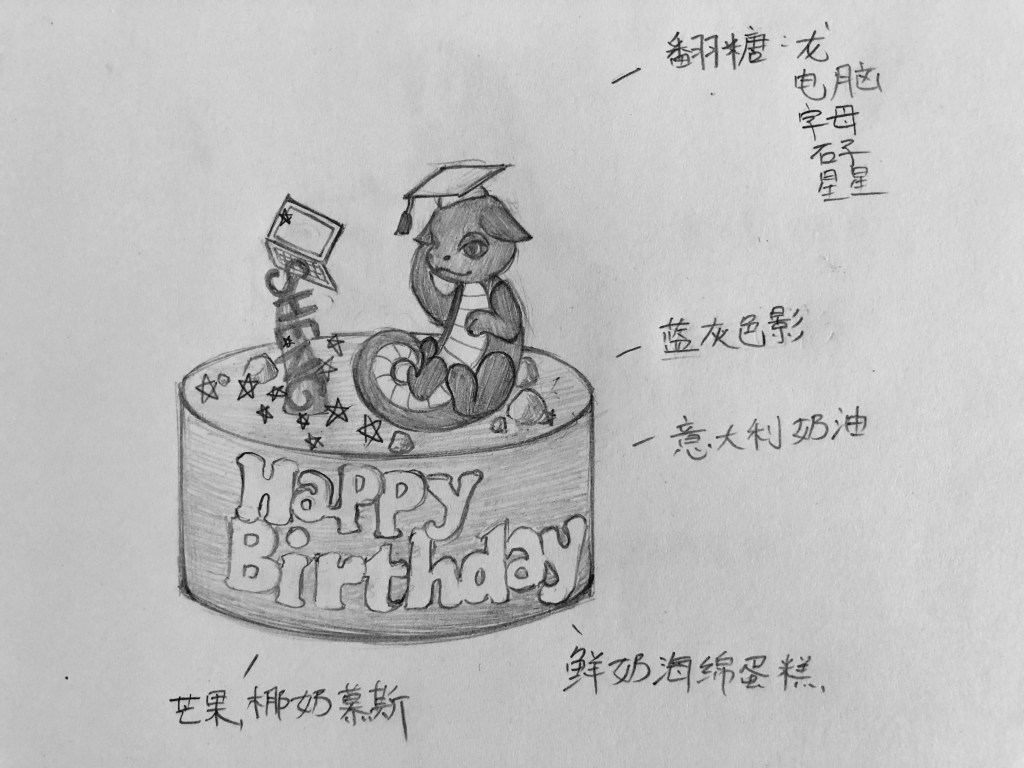 翻糖:龙
电脑
字母
石子
星星
SHENG
蓝灰色影
意大利奶油
Happy
Birthday
鲜奶海绵蛋糕.
芒果,椰奶慕斯